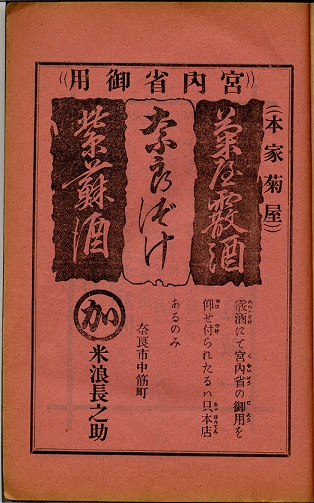 宮内省御用
本家菊屋
菊屋霰酒
奈良漬け
紫蘇酒
霰酒にて宮内省の御用を
仰せ付られたるハ只本店
あるのみ
奈良市中筋町
加 米浪長之助